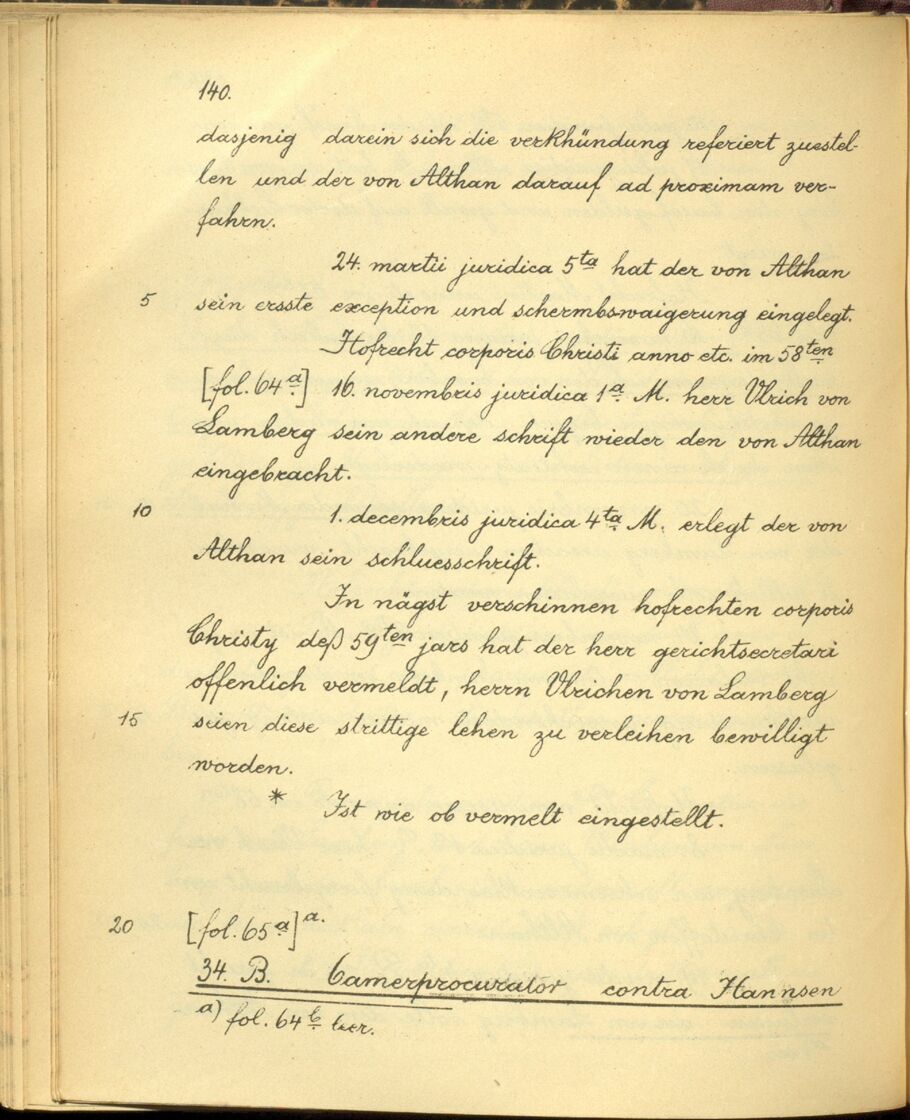 140.
dasjenig darein sich die verkhündung referiert zuestel-
len und der von Althan darauf ad proximam ver-
fahrn.
24. martii juridica 5ta hat der von Althan
5 sein ersste exception und schermbswaigerung eingelegt.
Hofrecht corporis Christi anno etc. im 58ten
[fol. 64a] 16. novembris juridica 1a M. herr Ulrich von
Lamberg sein andere schrift wieder den von Althan
eingebracht.
10 1. decembris juridica 4ta M. erlegt der von
Althan sein schluesschrift.
In nägst verschinnen hofrechten corporis
Christy deß 59ten jars hat der herr gerichtsecretari
offenlich vermeldt, herrn Ulrichen von Lamberg
15 seien diese strittige lehen zu verleihen bewilligt
worden.
* Ist wie ob vermelt eingestellt.
20 [fol. 65a]a.
34. B. Camerprocurator contra Hannsen
a) fol. 64b leer.